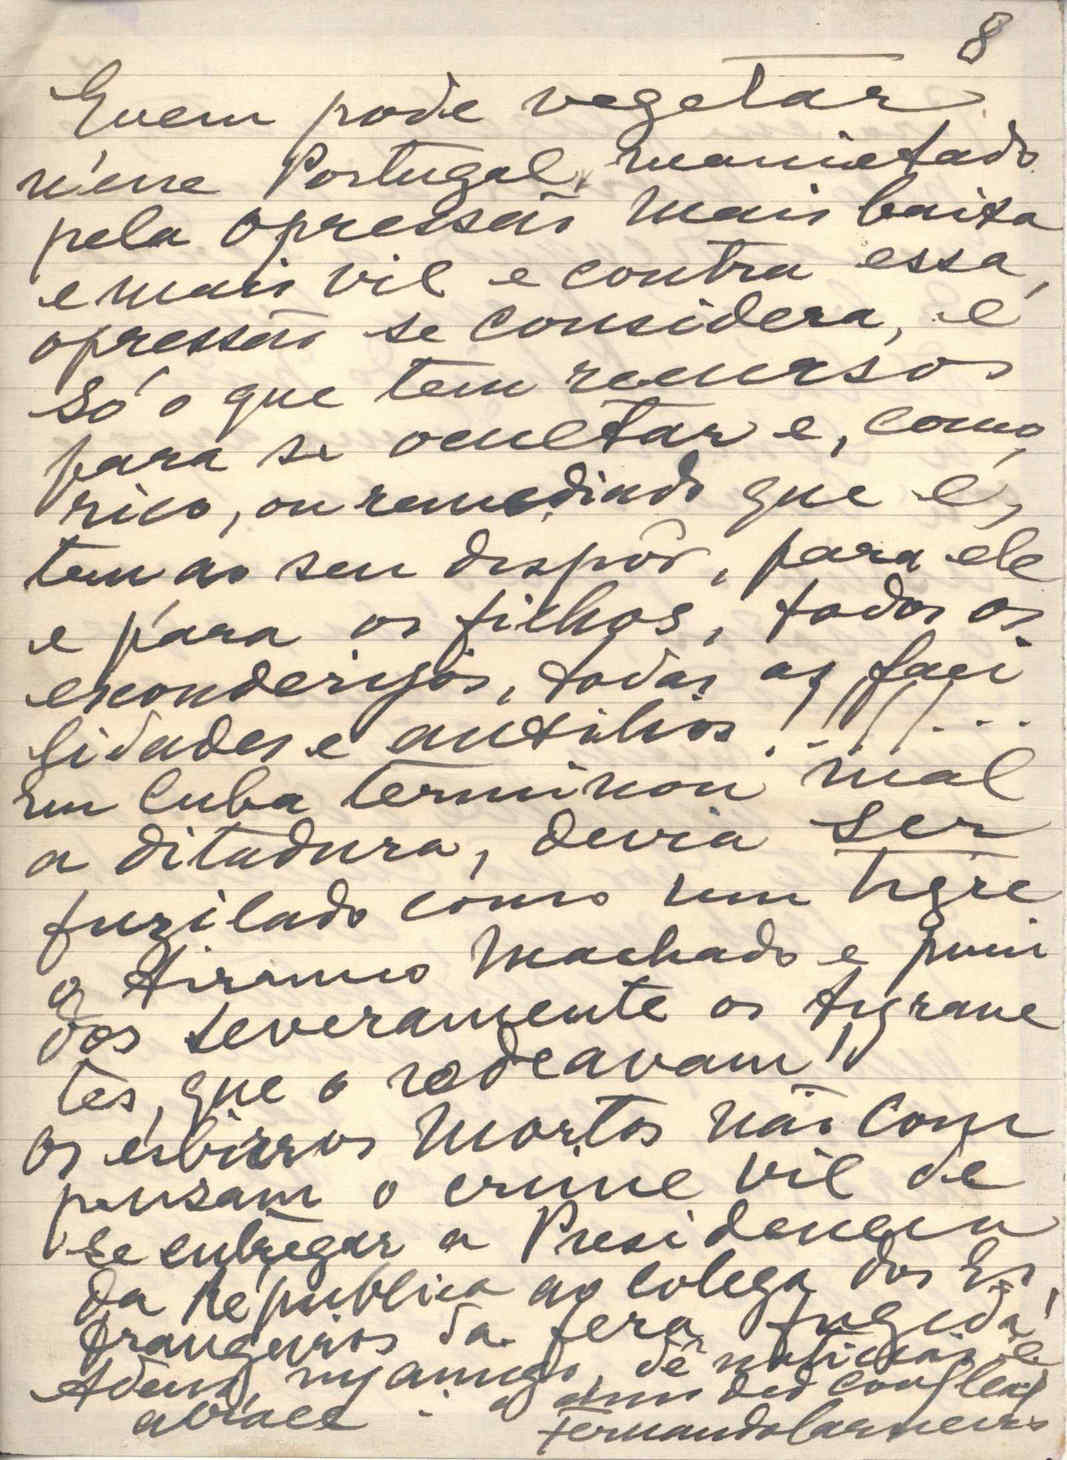 8
Quem pode vegetar
n'esse Portugal, manietado
pela opressão mais baixa
e mais vil e contra essa,
opressão se considera, é
só o que tem recursos
para se ocultar e, como
rico, ou remediado que é,
tem ao seu dispôr, para ele
e para os filhos, todos os
esconderijos, todas as faci
lidades e auxilios!!!!...
Em Cuba terminou mal
a ditadura, devia ser
fuzilado como um tigre
o Machado e puni
dos severamente os tyrane
tes, que o rodeavam!
Os esbirros mortos não com
pensam o crime vil de
se entregar a Presidencia
da Republica ao colega dos Es
trangeiros da fera fugida!
Adeus, meu amigo, dê noticias e
abrace o
Fernando Carneiro